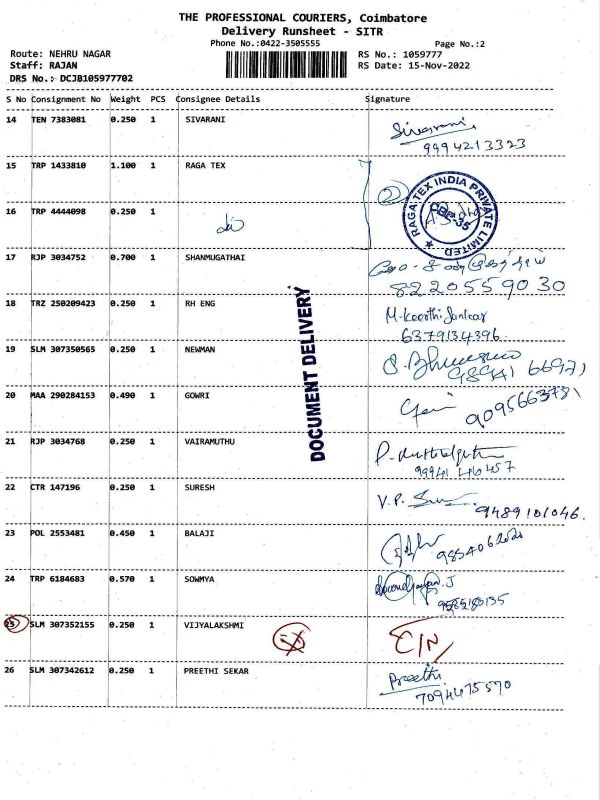 THE PROFESSIONAL COURIERS, Coimbatore
Delivery Runsheet - SITR
Phone No.:0422-3505555
Page No.:2
Route: NEHRU NAGAR
RS No.: 1059777
Staff: RAJAN
RS Date: 15-Nov-2022
DRS No.: DCJB105977702
S No Consignment No Weight PCS Consignee Details Signature
14 TEN 7383081 0.250 1 SIVARANI Sivarani
9994213323
15 TRP 1433810 1.100 1 RAGA TEX
2
RAGA TEX INDIA PRIVATE LIMITED
CBE-35
16 TRP 4444098 0.250 1
17 RJP 3034752 0.700 1 SHANMUGATHAI
8220559030
18 TRZ 250209423 0.250 1 RH ENG M.Keerthi Sankar
6379134396
19 SLM 307350565 0.250 1 NEWMAN
98941 66971
20 MAA 290284153 0.490 1 GOWRI
9095663781
21 RJP 3034768 0.250 1 VAIRAMUTHU
99941 46457
22 CTR 147196 0.250 1 SURESH V.P.
9489101046.
23 POL 2553481 0.450 1 BALAJI
24 TRP 6184683 0.570 1 SOWMYA
25 SLM 307352155 0.250 1 VIJYALAKSHMI
26 SLM 307342612 0.250 1 PREETHI SEKAR Preethi
7094475570
DOCUMENT DELIVERY